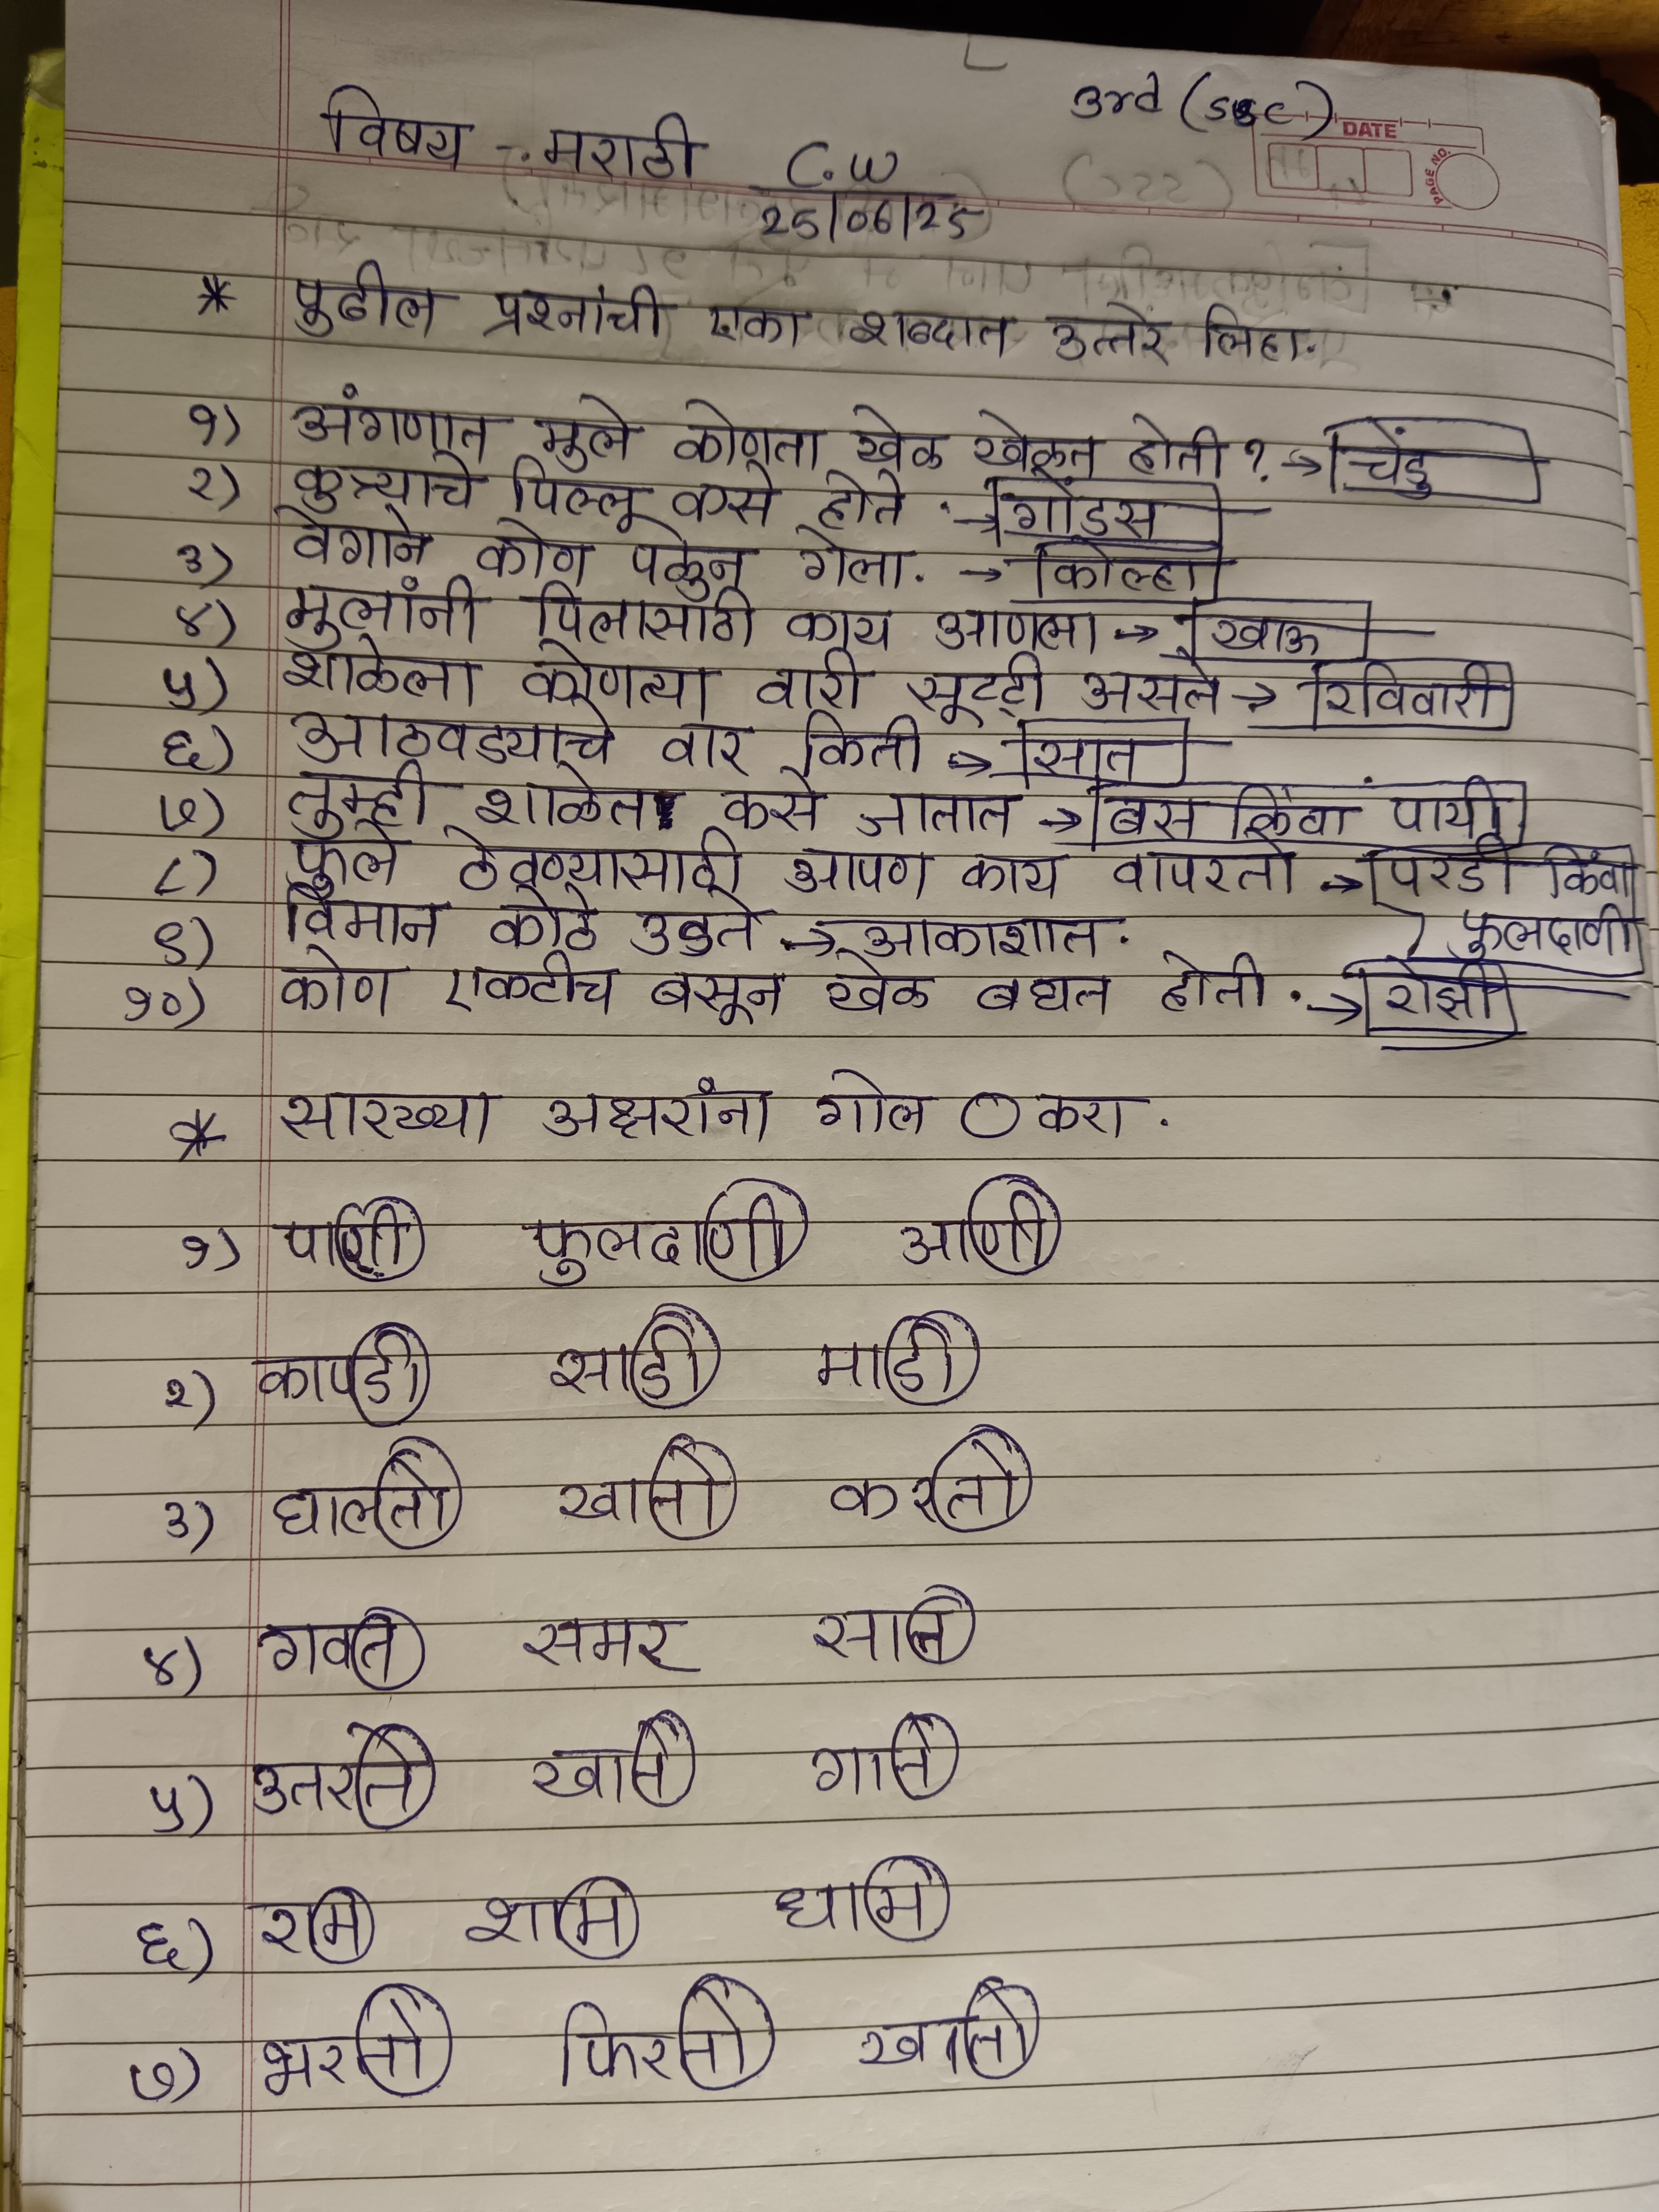 3rd (ssc)
DATE
PAGE NO.
विषय - मराठी C.W
25/06/25
* पुढील प्रश्नांची एका शब्दात उत्तरे लिहा.
१) अंगणात मुले कोणता खेळ खेळत होती? → चेंडु
२) कुत्र्याचे पिल्लू कसे होते. → गोंडस
३) वेगाने कोण पळुन गेला. → कोल्हा
४) मुलांनी पिलासाठी काय आणला → खाऊ
५) शाळेला कोणत्या वारी सूट्टी असते → रविवारी
६) आठवड्याचे वार किती → सात
७) तुम्ही शाळेत कसे जातात → बस किंवा पायी
८) फुले ठेवण्यासाठी आपण काय वापरतो → परडी किंवा
फुलदाणी
९) विमान कोठे उडते → आकाशात.
१०) कोण एकटीच बसून खेळ बघत होती. → रोझी
* सारख्या अक्षरांना गोल ○ करा.
१) पाणी फुलदाणी आणी
२) कापडी साडी माडी
३) घालतो खातो करतो
४) गवत समर सात
५) उतरते खाते गाते
६) राम शाम घाम
७) भरतो फिरतो खातो